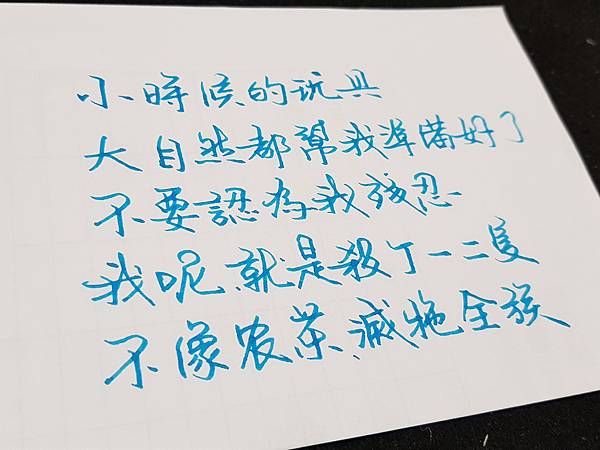 小時候的玩具
大自然都幫我準備好了
不要認為我殘忍
我呢就是殺了一二隻
不像农药、滅牠全族